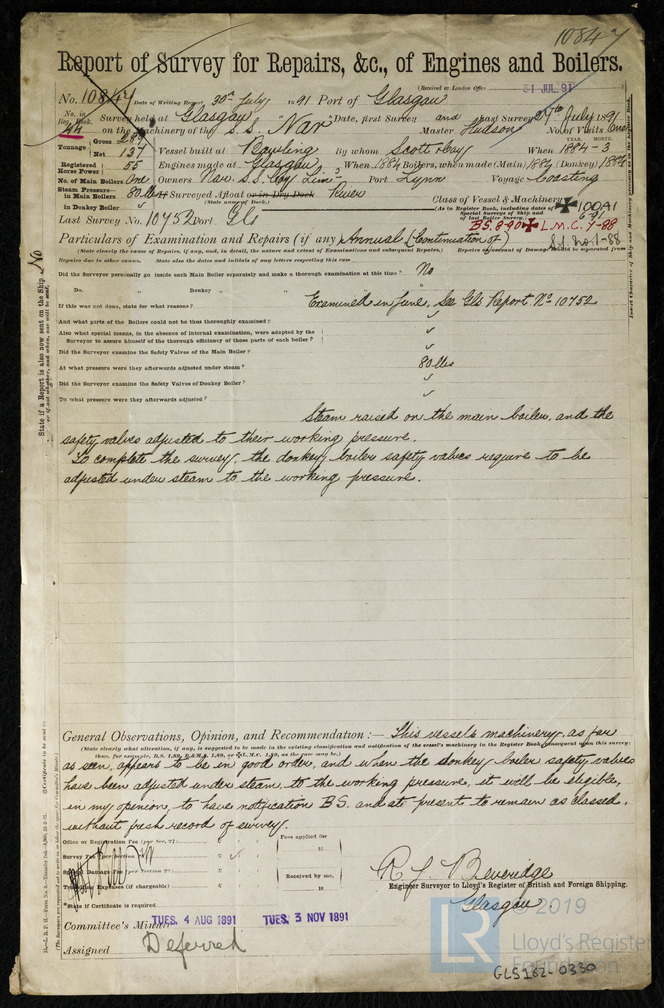 10847
Report of Survey for Repairs, &c., of Engines and Boilers.
(Received at London Office 31 JUL. 91
No. 10847 Date of Writing Report 30th July 1891 Port of Glasgow
No. in Reg. Book. 44 Survey held at Glasgow Date, first Survey and last Survey 27th July 1891
on the Machinery of the S.S. Nar Master Hudson No. of Visits One
Tonnage Gross 284 Net 137 Vessel built at Bowling By whom Scott & Coy When 1884-3
YEAR. MONTH.
Registered Horse Power 55 Engines made at Glasgow When 1884 Boilers, when made (Main) 1884 (Donkey) 1884
No. of Main Boilers One Owners Nar S.S. Coy Lim Port Lynn Voyage Coasting
Steam Pressure in Main Boilers 80 lbs If Surveyed Afloat or in Dry Dock River
(State name of Dock.)
in Donkey Boiler
Class of Vessel & Machinery 100A1
(As in Register Book, including dates of Special Surveys of Ship and of last Boiler Survey.)
6-91
BS. 8-90 L.M.C. 7-88
Last Survey No. 10752 Port Gls
Particulars of Examination and Repairs (if any) Annual (Continuation of)
(State clearly the cause of Repairs, if any, and, in detail, the nature and extent of Examinations and subsequent Repairs.) Repairs on account of Damage should be separated from
Repairs due to other causes. State also the dates and initials of any letters respecting this case
Did the Surveyor personally go inside each Main Boiler separately and make a thorough examination at this time? No
Do. Donkey
If this was not done, state for what reasons? Examined in June, See Gls Report No 10752
And what parts of the Boilers could not be thus thoroughly examined?
Also what special means, in the absence of internal examination, were adopted by the
Surveyor to assure himself of the thorough efficiency of those parts of each boiler?
Did the Surveyor examine the Safety Valves of the Main Boiler?
At what pressure were they afterwards adjusted under steam? 80 lbs
Did the Surveyor examine the Safety Valves of Donkey Boiler?
To what pressure were they afterwards adjusted?
Steam raised on the main boiler, and the
safety valves adjusted to their working pressure.
To complete the survey, the donkey boiler safety valves require to be
adjusted under steam to the working pressure.
General Observations, Opinion, and Recommendation:— This vessel's machinery, as far
(State clearly what alteration, if any, is suggested to be made in the existing classification and notification of the vessel's machinery in the Register Book consequent upon this survey;
as seen, appears to be in good order, and when the donkey boiler safety valves
have been adjusted under steam to the working pressure, it will be eligible,
in my opinion, to have notification B.S. and at present to remain as classed,
without fresh record of survey.
Office or Registration Fee (per Sec. 27) Fees applied for
Survey Fee (per Section 27)
Special Damage Fee (per Section 27) Received by me,
Travelling Expenses (if chargeable)
R. J. Beveridge
Engineer Surveyor to Lloyd's Register of British and Foreign Shipping.
*State if Certificate is required
Glasgow
Committee's Minute TUES. 4 AUG 1891 TUES. 3 NOV 1891
Assigned Deferred
State if a Report is also now sent on the Ship No
© 2019
LR Lloyd's Register Foundation
GLS162-0330